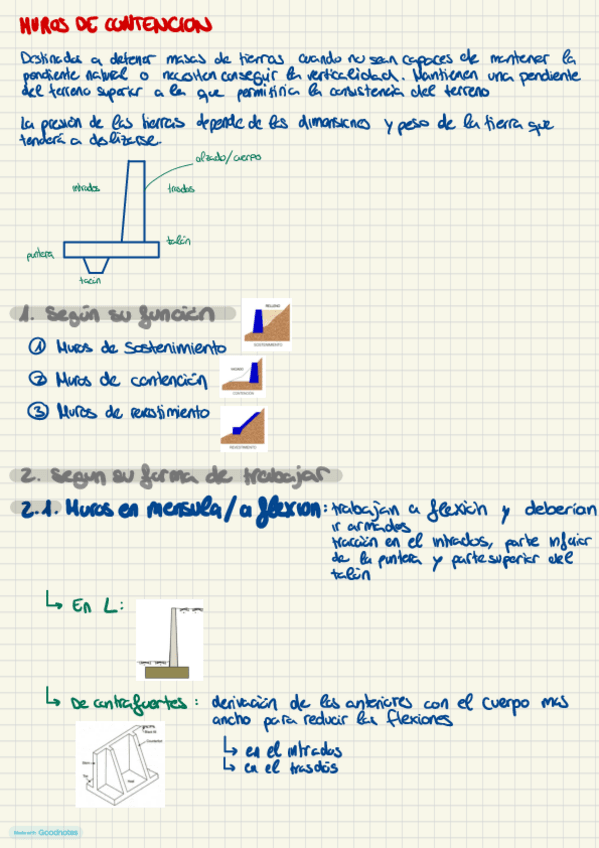 MUROS DE CONTENCION
Destinados a detener masas de tierras cuando no sean capaces de mantener la
pendiente natural o necesiten conseguir la verticalidad. Mantienen una pendiente
del terreno superior a la que permitiria la consistencia del terreno
La presión de las tierras depende de las dimensiones y peso de la tierra que
tenderá a deslizarse.
alzado/cuerpo
intrados
trasdos
talón
puntera
tacón
1. Según su función
RELLENO
SOSTENIMIENTO
① Muros de Sostenimiento
② Muros de contención
CONTENCION
③ Muros de revestimiento
REVESTIMIENTO
2. Segun su forma de trabajar
2.1. Muros en mensula/a flexion: trabajan a flexión y deberian
ir armados
tracción en el intrados, parte inferior
de la puntera y parte superior del
talón
↳ En L:
↳ De contrafuertes: derivación de los anteriores con el cuerpo mas
ancho para reducir las flexiones
↳ en el intrados
↳ en el trasdós
Made with Goodnotes